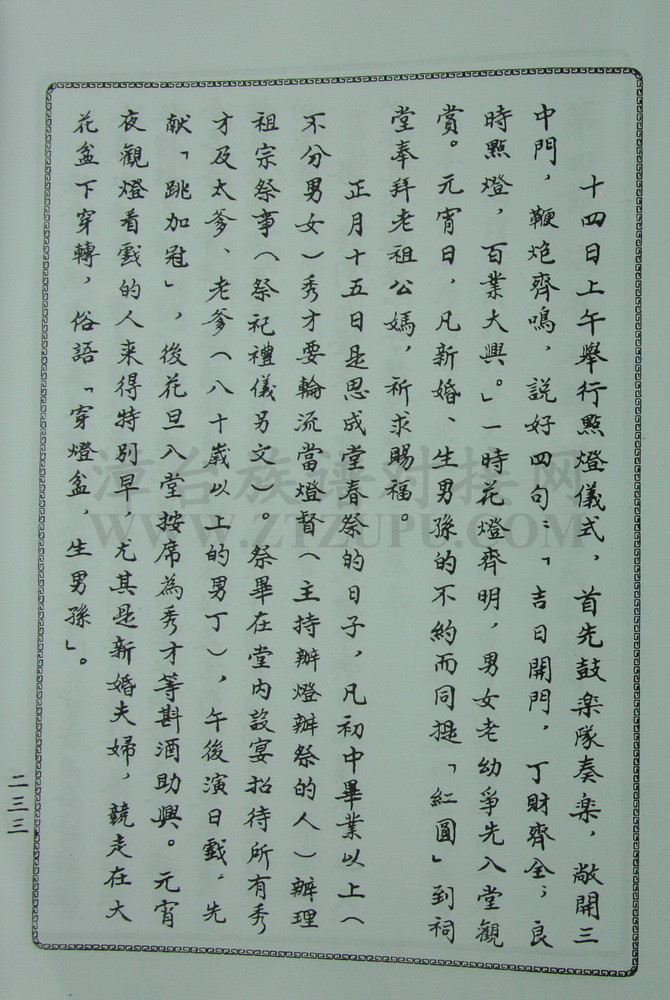 十四日上午舉行點燈儀式，首先鼓楽隊奏楽，敞開三
中門，鞭炮齊鳴，説好四句：「吉日開門，丁財齊全；良
時點燈，百業大興。」一時花燈齊明，男女老幼爭先入堂觀
賞。元宵日，凡新婚、生男孫的不約而同提「紅圓」到祠
堂奉拜老祖公媽，祈求賜福。
正月十五日是思成堂春祭的日子，凡初中畢業以上（
不分男女）秀才要輪流當燈督（主持辦燈辦祭的人）辦理
祖宗祭事（祭祀禮儀另文）。祭畢在堂內設宴招待所有秀
才及太爹、老爹（八十歲以上的男丁），午後演日戲，先
献「跳加冠」，後花旦入堂按席為秀才等斟酒助興。元宵
夜觀燈看戲的人来得特別早，尤其是新婚夫婦，競走在大
花盆下穿轉，俗語「穿燈盆，生男孫」。
二三三
漳台族譜對接网
WWW.ZTZUPU.COM